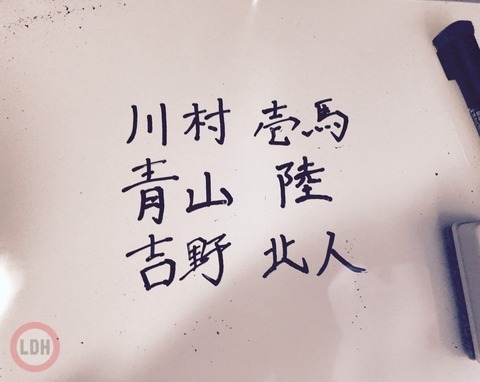 川村 壱馬
青山 陸
吉野 北人
LDH